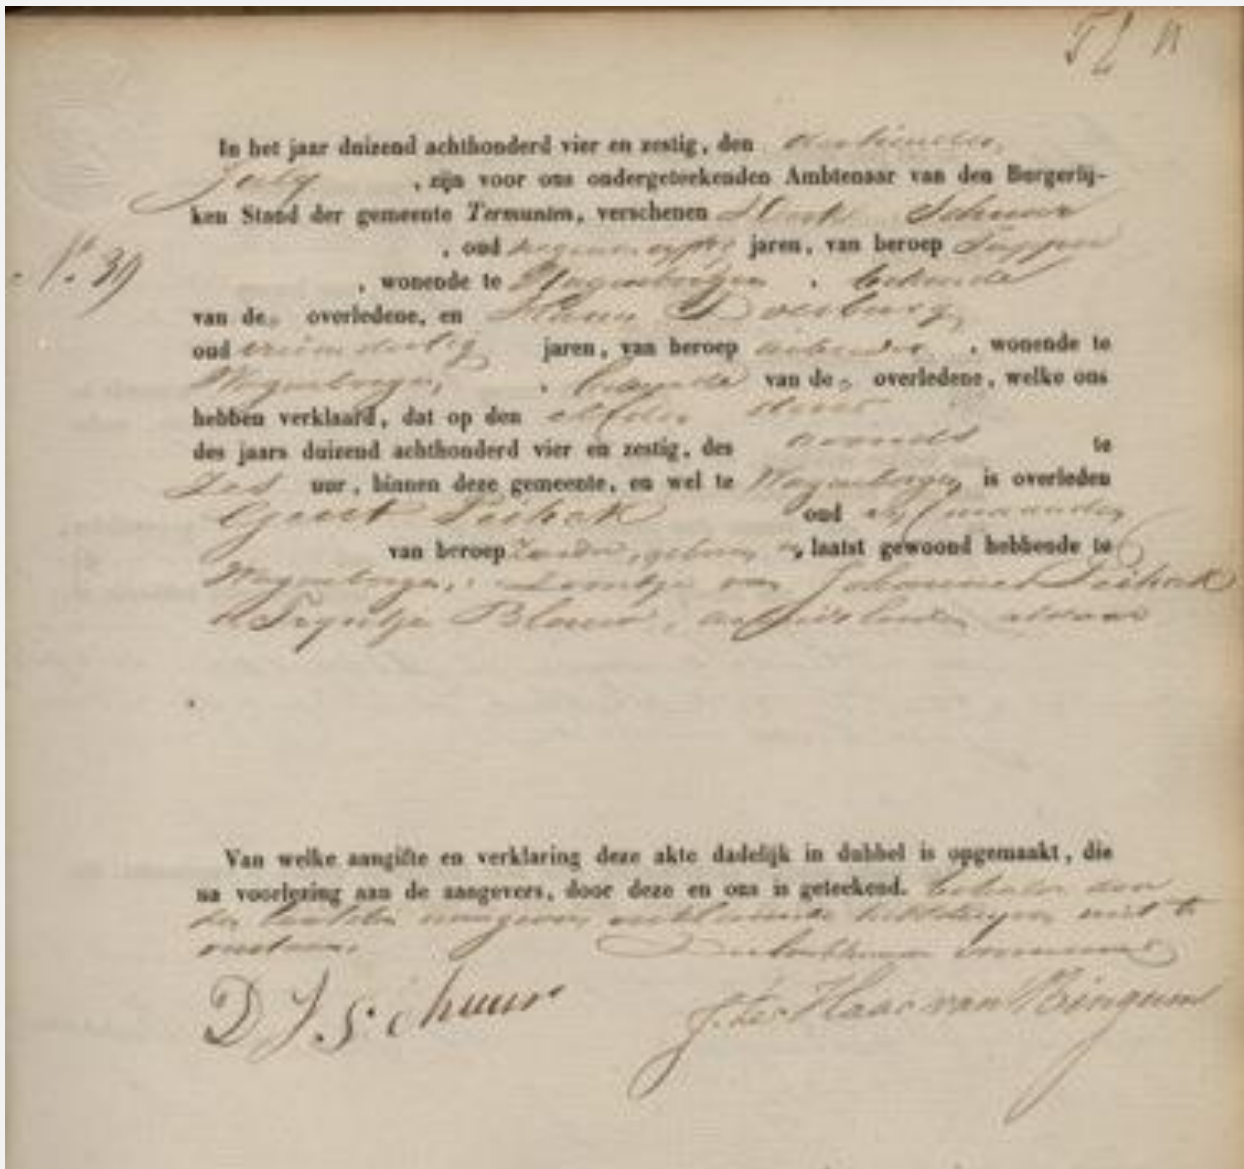 In het jaar duizend achthonderd vier en zestig, den dertienden
July , zijn voor ons ondergeteekenden Ambtenaar van den Burgerlij-
ken Stand der gemeente Termunten, verschenen Schuur
N.º 39
, oud jaren, van beroep
, wonende te Wagenborgen , bekende
van de overledene, en Harm Doesburg
oud jaren, van beroep arbeider , wonende te
Wagenborgen , bekende van de overledene, welke ons
hebben verklaard, dat op den elfden dezer
des jaars duizend achthonderd vier en zestig, des avonds te
Zes uur, binnen deze gemeente, en wel te Wagenborgen is overleden
Geert oud vijf maanden
van beroep zonder, geboren en laatst gewoond hebbende te
Wagenborgen, Zoontje van Johannes
& Trijntje Blaauw, arbeidslieden aldaar
Van welke aangifte en verklaring deze akte dadelijk in dubbel is opgemaakt, die
na voorlezing aan de aangevers, door deze en ons is geteekend. behalve door
den laatsten aangever, verklarende niet te
verstaan.
D J Schuur
J. ter Haar van Bingum